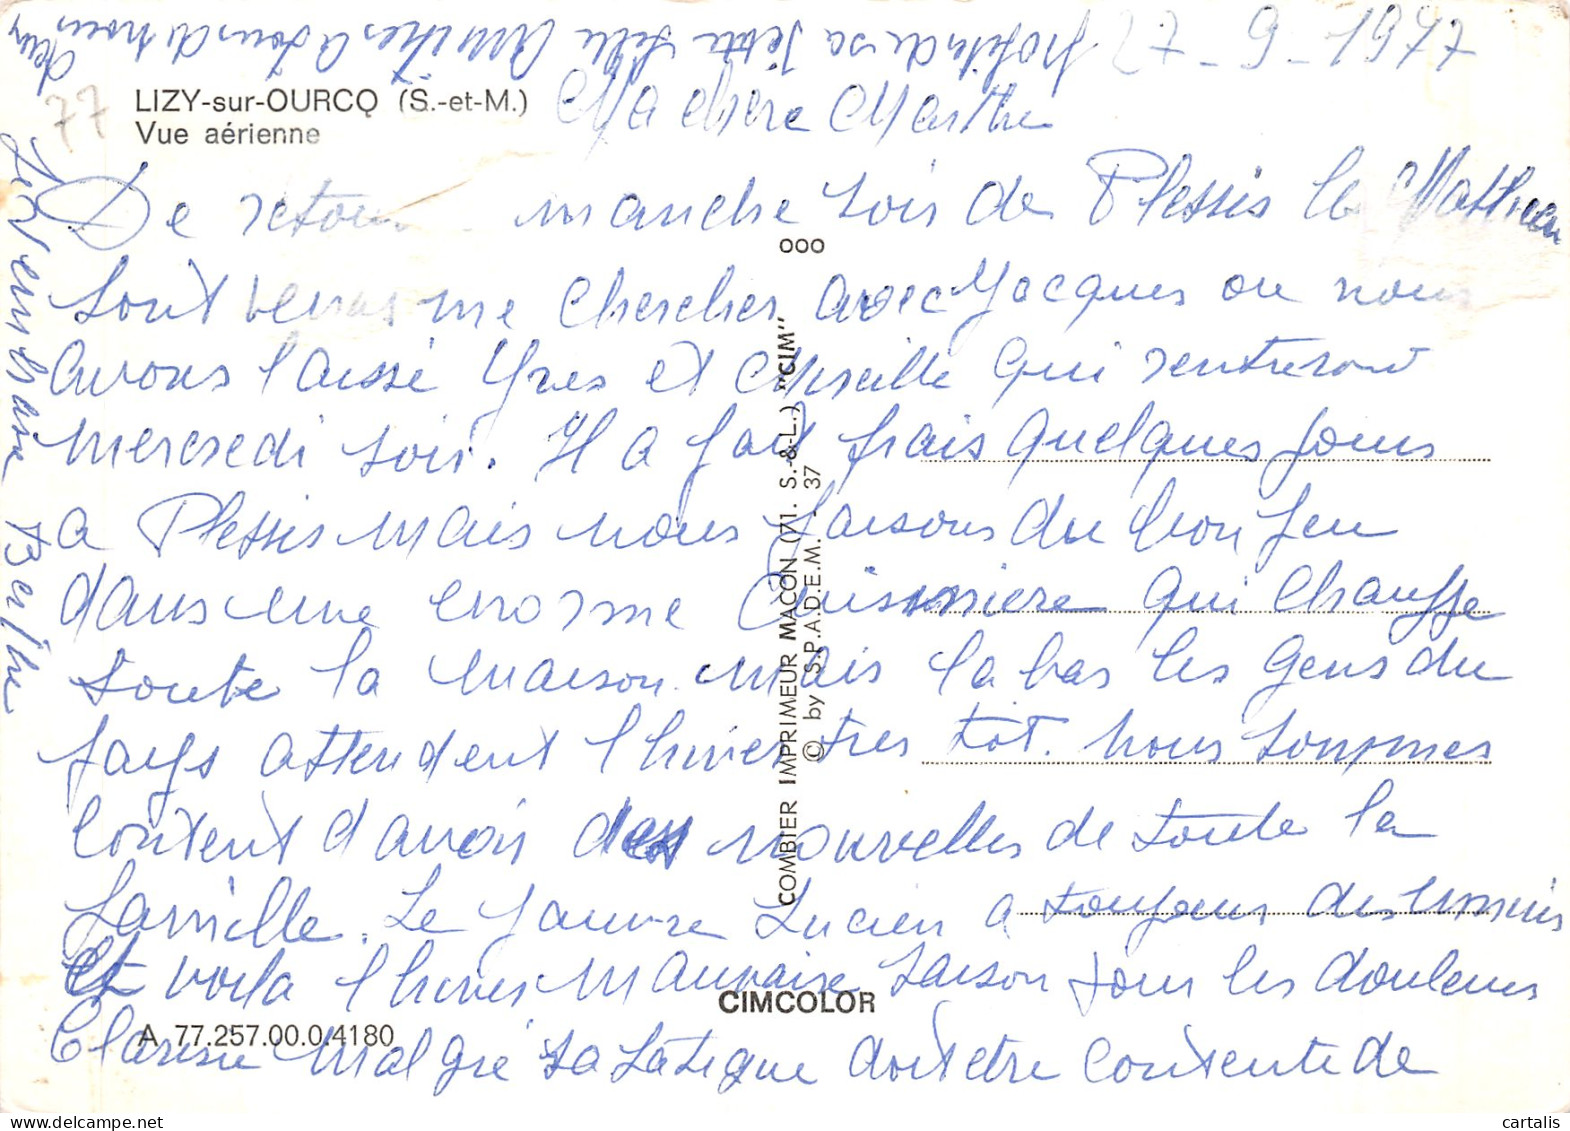 27-9-1977
77
LIZY-sur-OURCQ (S.-et-M.)
Vue aérienne
Ma chère Marthe
De retour manche soir de Plessis le Mathieu
sont venus me chercher avec Jacques ou nous
avons laissé Yves et Mireille qui rentreront
mercredi soir. Il a fait frais quelques jours
a Plessis mais nous faisons du bon feu
dans une enorme Cuisiniere qui chauffe
toute la maison mais la bas les gens du
pays attendent l hiver tres tot. nous sommes
content d avoir des nouvelles de toute la
famille. Le pauvre Lucien a toujours des ennuis
et voila l hiver mauvaise saison pour les douleurs
Clarisse malgré sa satique doit etre contente de
profiter de sa petite fille Amitiés a tous de nous
deux
Berthe
ooo
COMBIER IMPRIMEUR MACON (71. S.-&-L.) "CIM"
© by S.P.A.D.E.M. - 37
CIMCOLOR
A 77.257.00.0.4180
cartalis